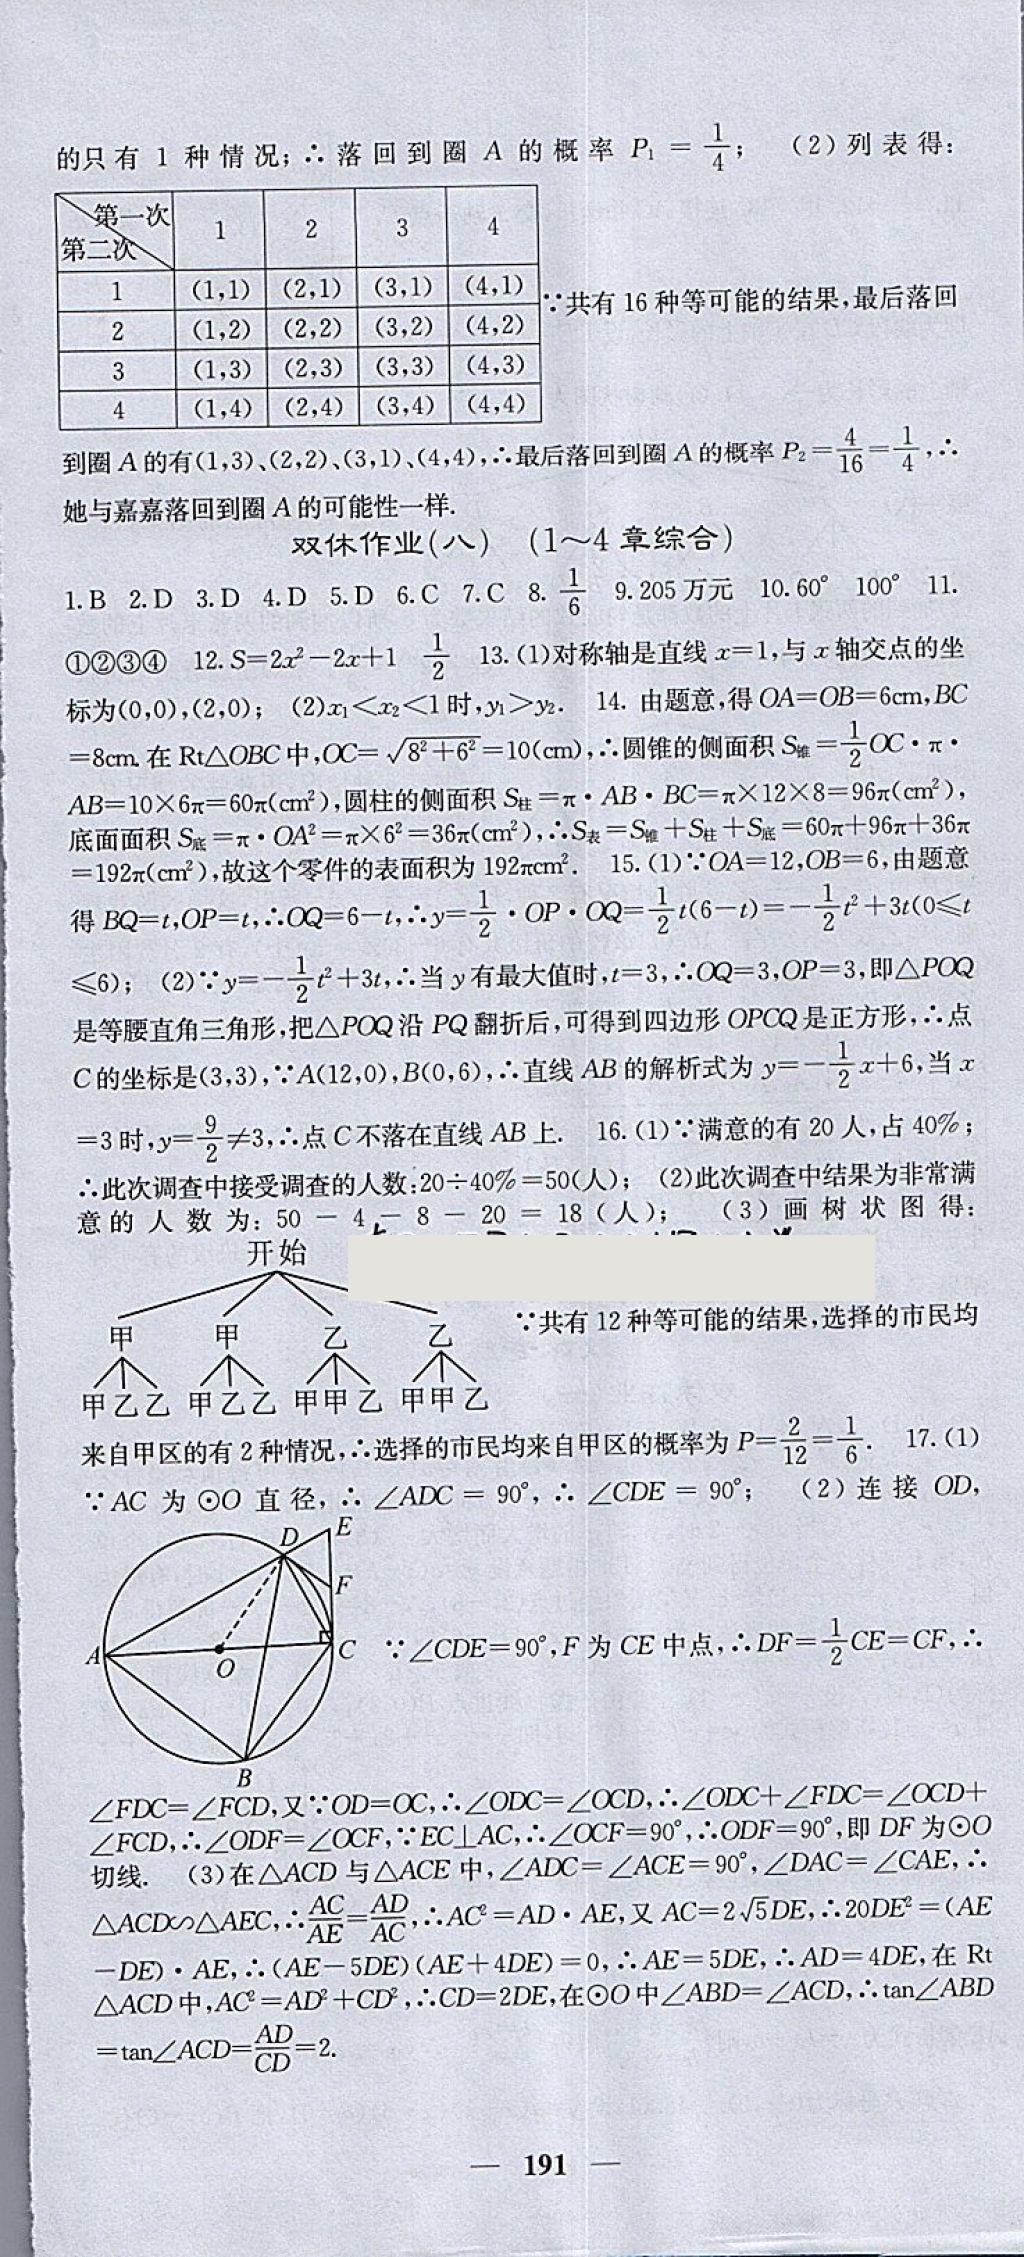 的只有 1 种情况;∴落回到圈 A 的概率 P₁ = 1/4; (2)列表得:
第一次 1 2 3 4
第二次
1 (1,1) (2,1) (3,1) (4,1)
2 (1,2) (2,2) (3,2) (4,2)
3 (1,3) (2,3) (3,3) (4,3)
4 (1,4) (2,4) (3,4) (4,4)
∵共有 16 种等可能的结果,最后落回
到圈 A 的有(1,3)、(2,2)、(3,1)、(4,4),∴最后落回到圈 A 的概率 P₂=4/16=1/4,∴
她与嘉嘉落回到圈 A 的可能性一样.
双休作业(八) (1~4 章综合)
1.B 2.D 3.D 4.D 5.D 6.C 7.C 8. 1/6 9.205 万元 10.60° 100° 11.
①②③④ 12.S=2x²-2x+1 1/2 13.(1)对称轴是直线 x=1,与 x 轴交点的坐
标为(0,0),(2,0); (2)x₁<x₂<1 时,y₁>y₂. 14. 由题意,得 OA=OB=6cm,BC
=8cm.在 Rt△OBC 中,OC=√(8²+6²)=10(cm),∴圆锥的侧面积 S锥=1/2OC·π·
AB=10×6π=60π(cm²),圆柱的侧面积 S柱=π·AB·BC=π×12×8=96π(cm²),
底面面积 S底=π·OA²=π×6²=36π(cm²),∴S表=S锥+S柱+S底=60π+96π+36π
=192π(cm²),故这个零件的表面积为 192πcm². 15.(1)∵OA=12,OB=6,由题意
得 BQ=t,OP=t,∴OQ=6-t,∴y=1/2·OP·OQ=1/2t(6-t)=-1/2t²+3t(0≤t
≤6); (2)∵y=-1/2t²+3t,∴当 y 有最大值时,t=3,∴OQ=3,OP=3,即△POQ
是等腰直角三角形,把△POQ 沿 PQ 翻折后,可得到四边形 OPCQ 是正方形,∴点
C 的坐标是(3,3),∵A(12,0),B(0,6),∴直线 AB 的解析式为 y=-1/2x+6,当 x
=3 时,y=9/2≠3,∴点 C 不落在直线 AB 上. 16.(1)∵满意的有 20 人,占 40%;
∴此次调查中接受调查的人数:20÷40%=50(人); (2)此次调查中结果为非常满
意的人数为: 50 - 4 - 8 - 20 = 18(人); (3)画树状图得:
开始
甲 甲 乙 乙
甲乙乙 甲乙乙 甲甲乙 甲甲乙
∵共有 12 种等可能的结果,选择的市民均
来自甲区的有 2 种情况,∴选择的市民均来自甲区的概率为 P=2/12=1/6. 17.(1)
∵AC 为⊙O 直径,∴∠ADC = 90°,∴∠CDE = 90°; (2)连接 OD,
D E
F
A O C
B
∵∠CDE=90°,F 为 CE 中点,∴DF=1/2CE=CF,∴
∠FDC=∠FCD,又∵OD=OC,∴∠ODC=∠OCD,∴∠ODC+∠FDC=∠OCD+
∠FCD,∴∠ODF=∠OCF,∵EC⊥AC,∴∠OCF=90°,∴ODF=90°,即 DF 为⊙O
切线. (3)在△ACD 与△ACE 中,∠ADC=∠ACE=90°,∠DAC=∠CAE,∴
△ACD∽△AEC,∴AC/AE=AD/AC,∴AC²=AD·AE,又 AC=2√5DE,∴20DE²=(AE
-DE)·AE,∴(AE-5DE)(AE+4DE)=0,∴AE=5DE,∴AD=4DE,在 Rt
△ACD 中,AC²=AD²+CD²,∴CD=2DE,在⊙O 中∠ABD=∠ACD,∴tan∠ABD
=tan∠ACD=AD/CD=2.
— 191 —